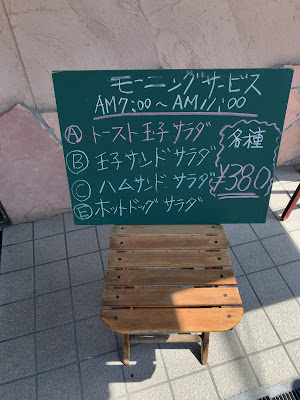 モーニングサービス
AM7:00~AM11:00
Ⓐトースト玉子サラダ
Ⓑ玉子サンドサラダ
Ⓒハムサンドサラダ
Ⓔホットドッグサラダ
各種
¥380